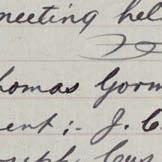 meeting hel
homas Gorm
ent; - J. C